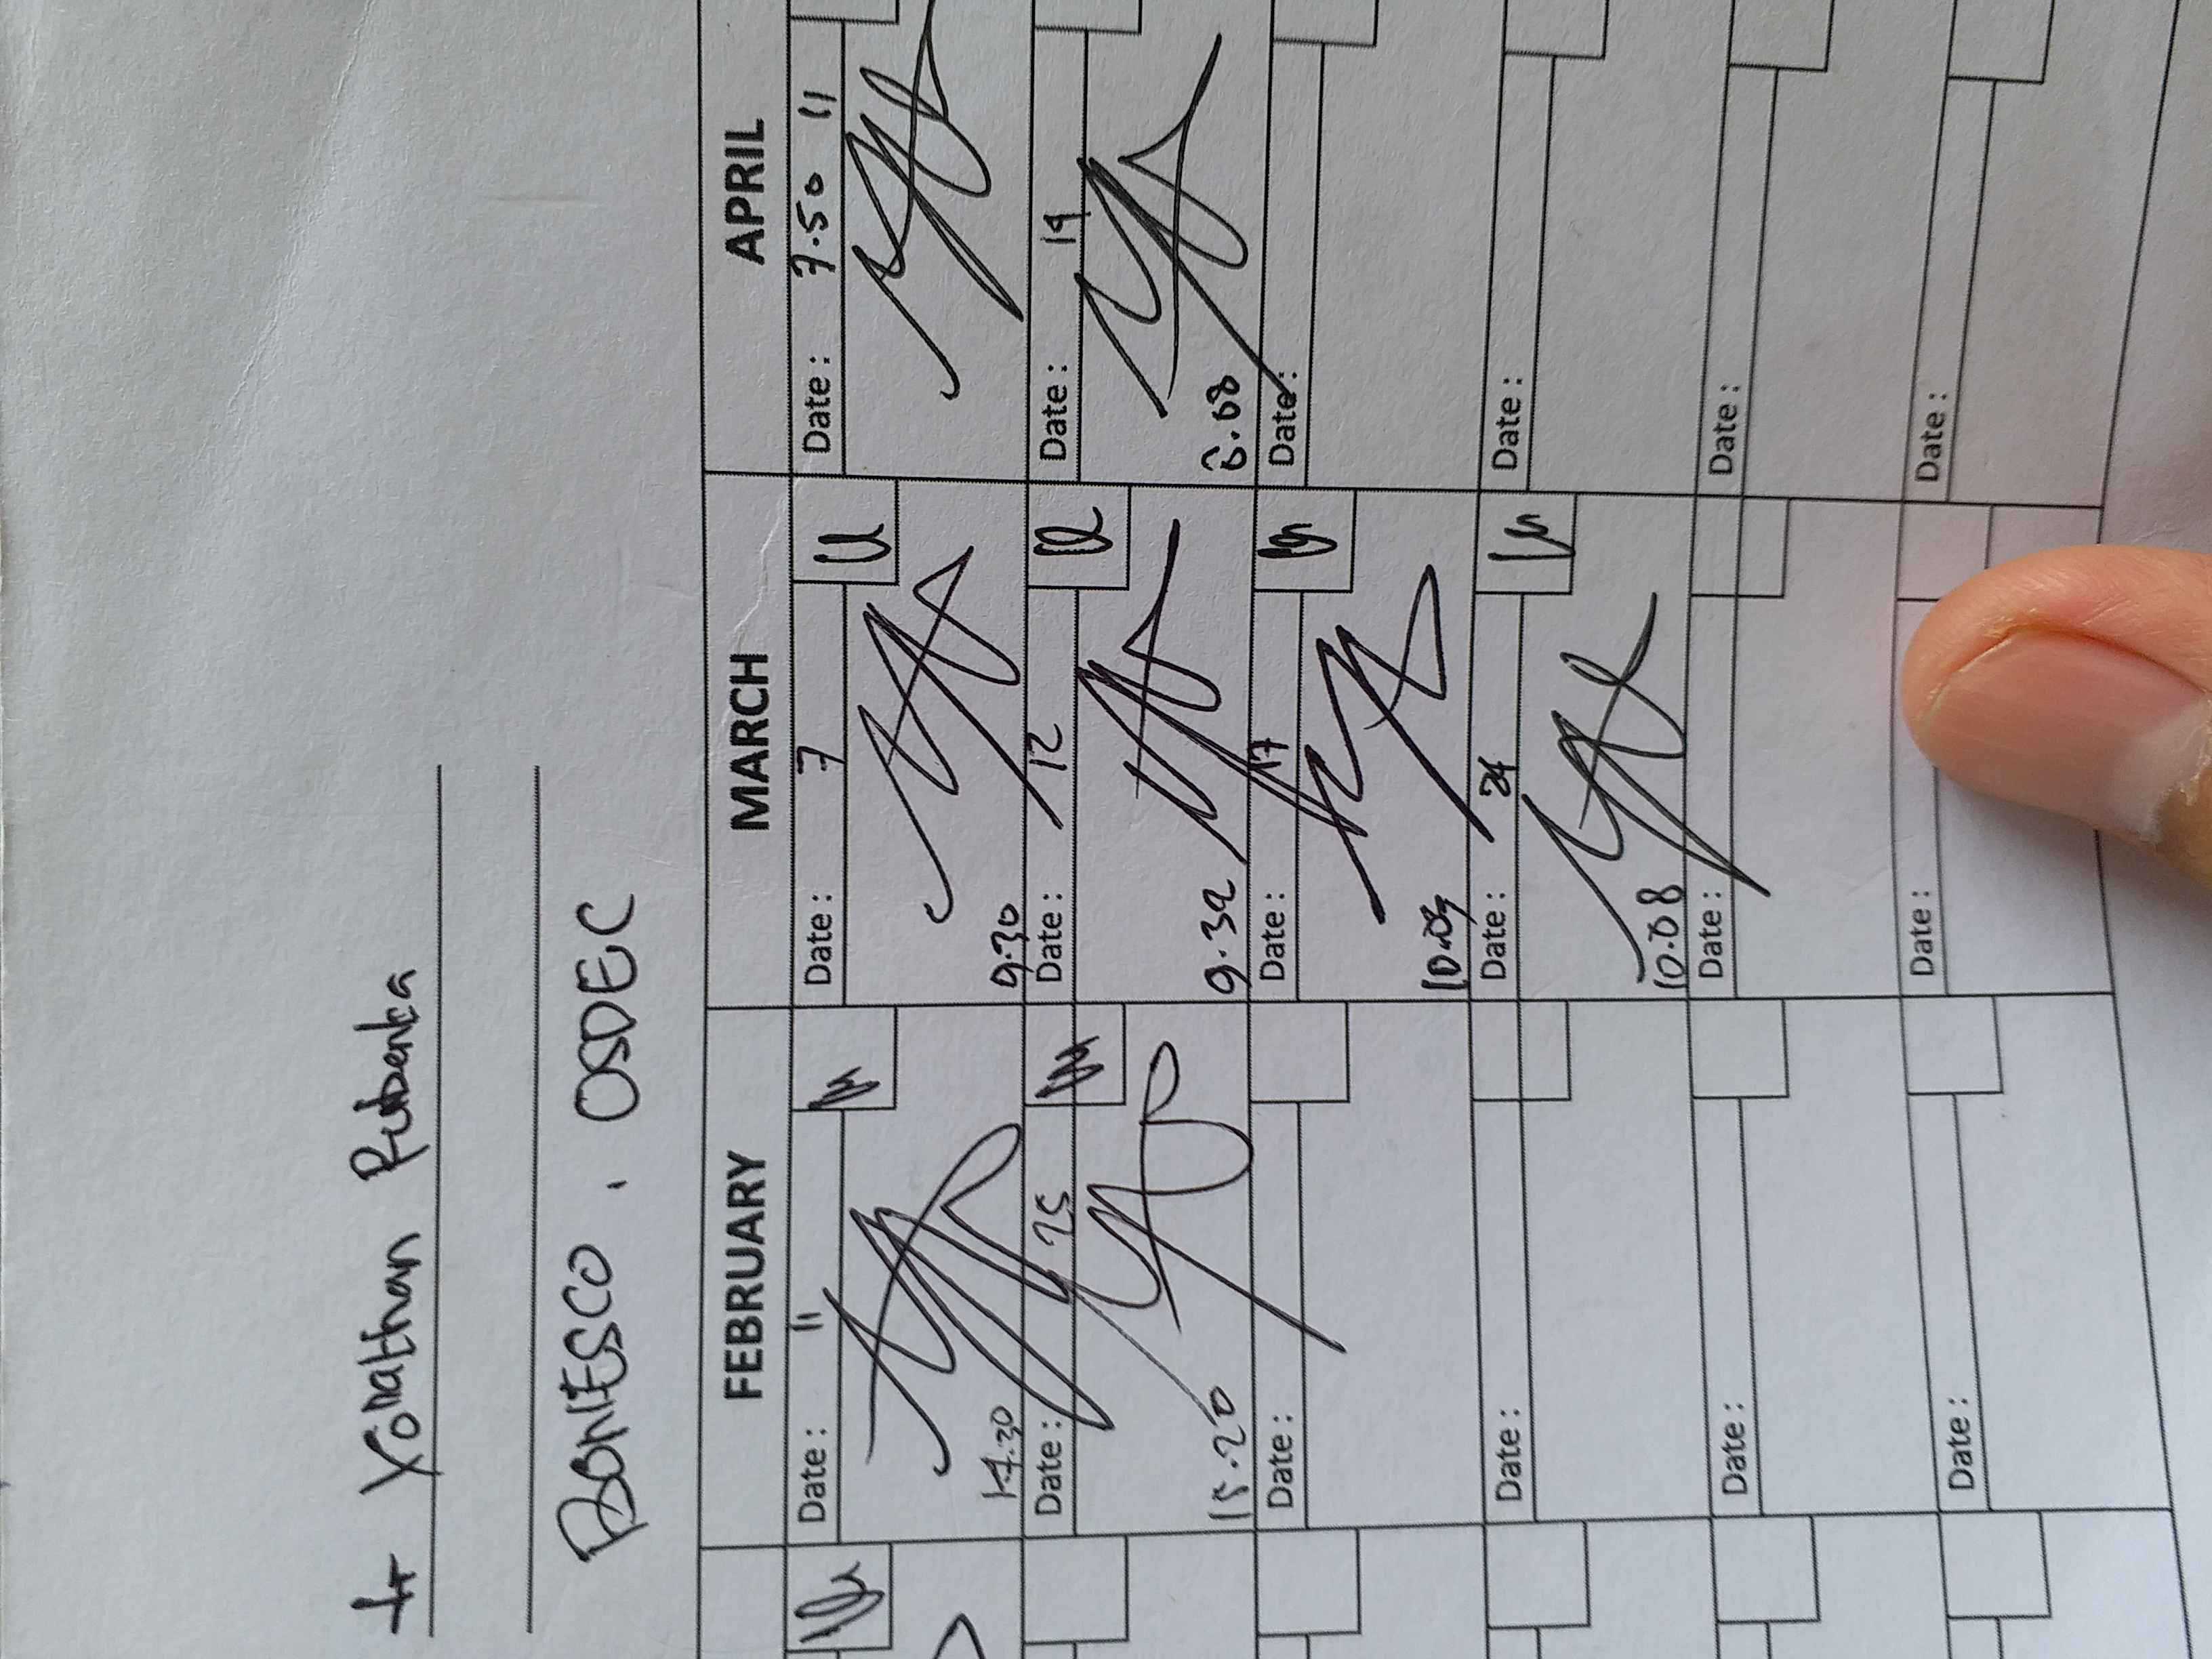 Yonathan Rubenka
OSDEC
FEBRUARY MARCH APRIL
Date: 11 Date: 7 Date: 7.50 11
14.30 9.30
Date: 25 Date: 12 Date: 19
15.20 9.32 8.08
Date: Date: 17 Date:
Date: Date: 24 Date:
10.08
Date: Date: Date:
Date: Date: Date: